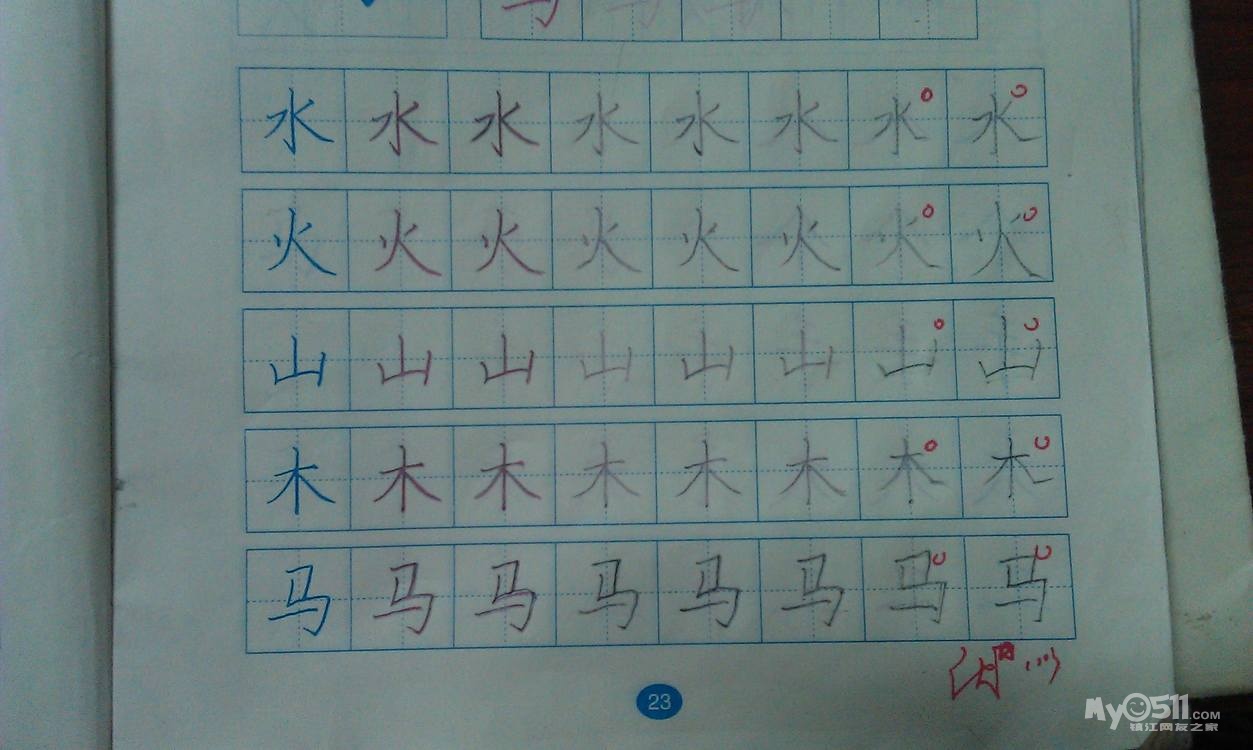 水 水 水 水 水 水 水 水
火 火 火 火 火 火 火 火
山 山 山 山 山 山 山 山
木 木 木 木 木 木 木 木
马 马 马 马 马 马 马 马
23
My0511.COM
镇江网友之家